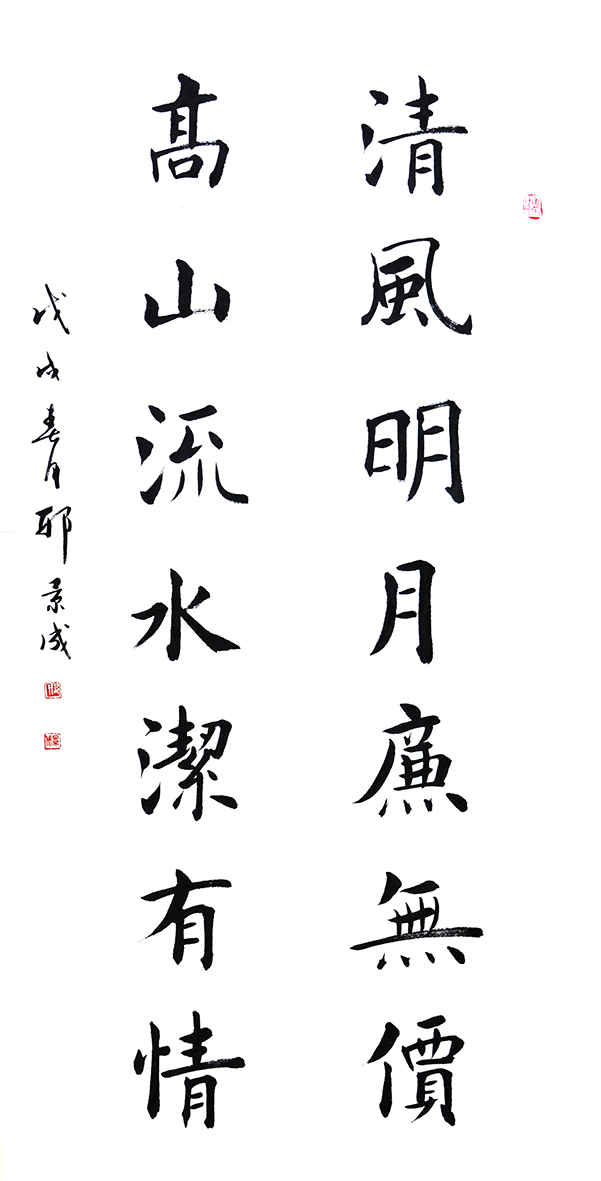 清風明月廉無價
高山流水潔有情
戊戌春月耶景成